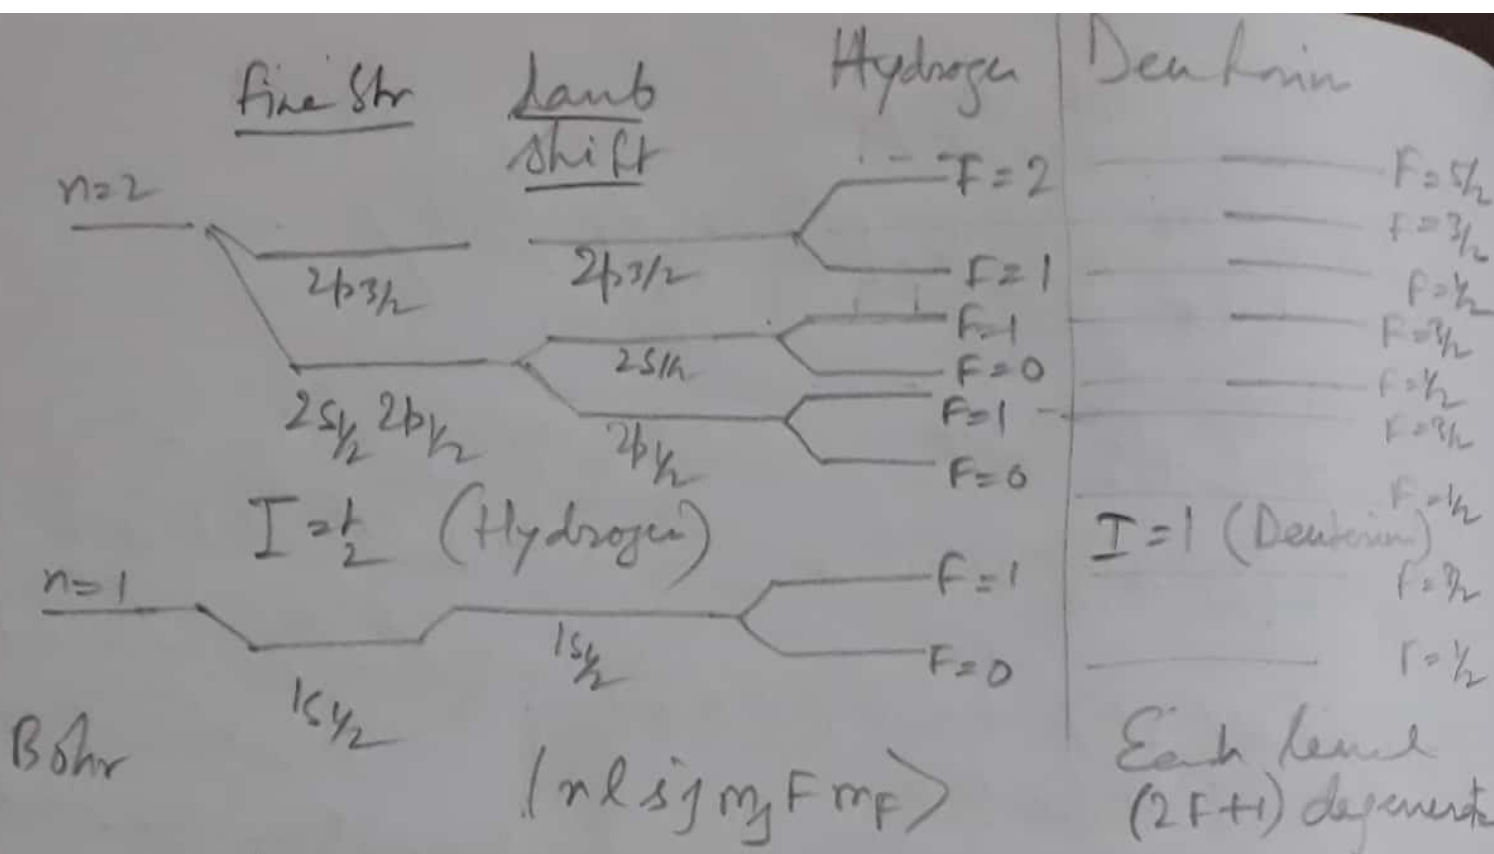 fine Str
Lamb
shift
Hydrogen
Deuterium
n=2
2p3/2
2p3/2
F=2
F=1
F=5/2
F=3/2
F=1/2
2s1/2
F=1
F=0
F=3/2
F=1/2
2s1/2 2p1/2
2p1/2
F=1
F=0
F=3/2
F=1/2
I=1/2 (Hydrogen)
I=1 (Deuterium)
n=1
1s1/2
1s1/2
F=1
F=0
F=3/2
F=1/2
Bohr
|n l s j mj F mF>
Each level
(2F+1) degenerate